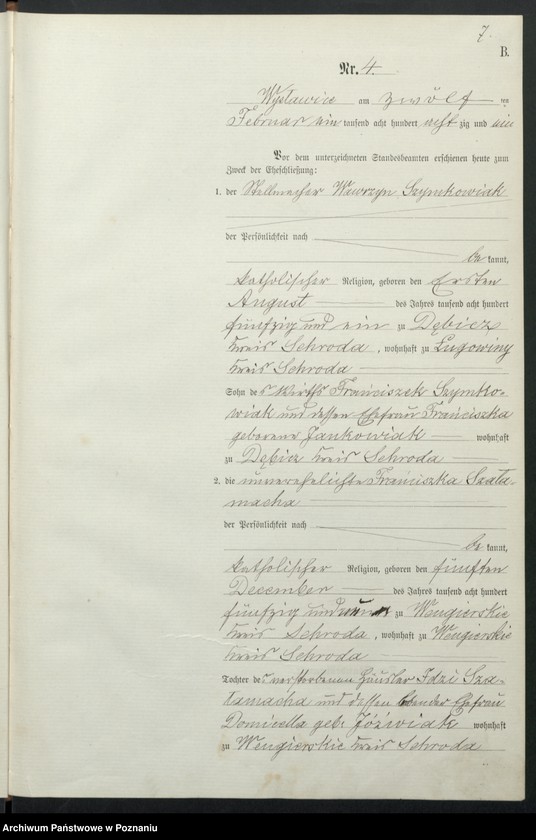 7.
B.
Nr. 4.
Wysławice am zwölf ten
Februar ein tausend acht hundert acht zig und ein
Vor dem unterzeichneten Standesbeamten erschienen heute zum
Zweck der Eheschließung:
1. der Stellmacher Wawrzyn Szymkowiak
der Persönlichkeit nach
be kannt,
katholischer Religion, geboren den Ersten
August des Jahres tausend acht hundert
fünfzig und ein zu Dębicz
Kreis Schroda, wohnhaft zu Ługowiny
Kreis Schroda
Sohn des Wirths Franciszek Szymko-
wiak und dessen Ehefrau Franciszka
geborene Jankowiak wohnhaft
zu Dębicz Kreis Schroda
2. die unverehelichte Franciszka Szała-
macha
der Persönlichkeit nach
be kannt,
katholischer Religion, geboren den fünften
December des Jahres tausend acht hundert
fünfzig und zu Wengierskie
Kreis Schroda, wohnhaft zu Wengierskie
Kreis Schroda
Tochter des verstorbenen Häusler Idzi Sza-
łamacha und dessen Ehefrau
Domicella geb. Jóźwiak wohnhaft
zu Wengierskie Kreis Schroda
Archiwum Państwowe w Poznaniu